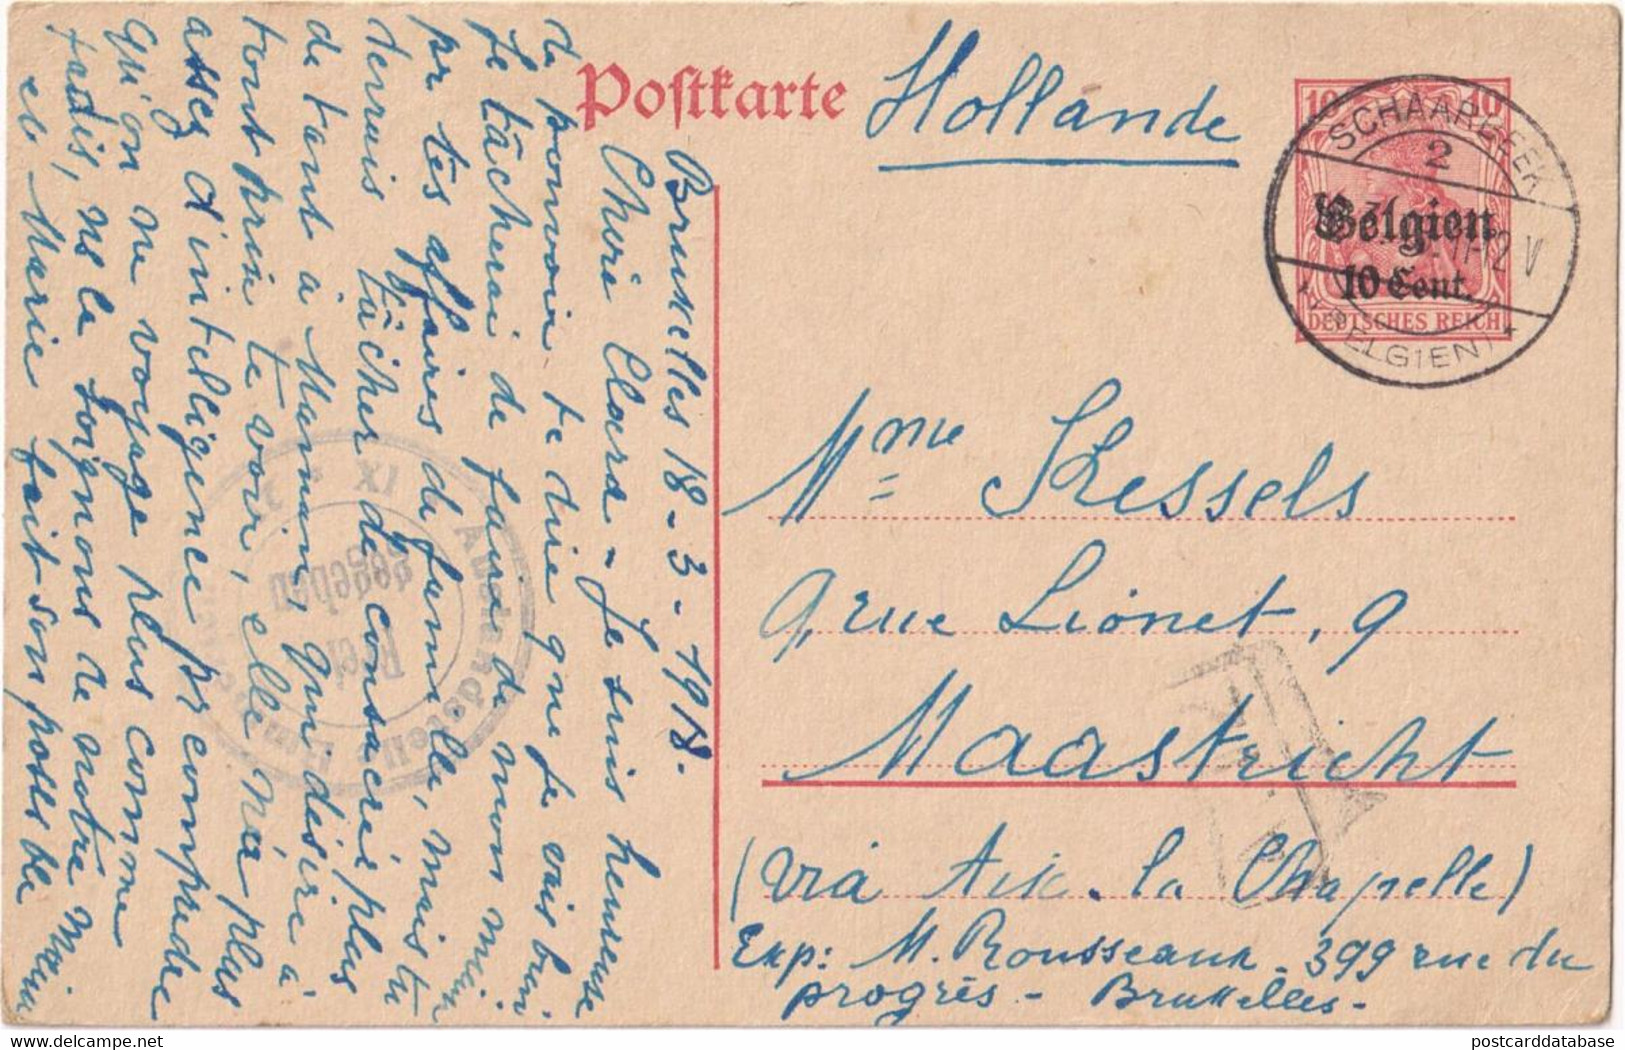 Postkarte
Hollande
10 10
SCHAARBEEK
2
Belgien
10 Cent.
11-12 V
DEUTSCHES REICH
(BELGIEN)
Mme Kessels
9, rue Lionet, 9
Maastricht
(via Aix-la Chapelle)
Exp: M. Rousseaux - 399 rue du
progrès - Bruxelles -
Bruxelles 18-3-1918.
Chère Clara - Je suis heureuse
de pouvoir te dire que je vais bien
Je tâcherai de faire de mon mieux
pr tes affaires de famille, mais tu
devrais tâcher de consacrer plus
de tant à Maman, qui désire à
tout prix te voir, elle n'a plus
assez d'intelligence pr comprendre
qu'on ne voyage plus comme
jadis, ns la soignons de notre mieux
et Marie fait son possible
Auslandstelle
IX
Frei
gegeben
postcarddatabase